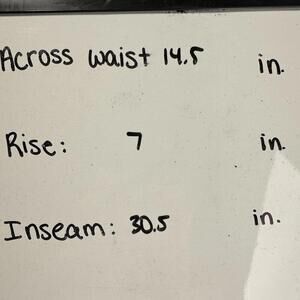 Across waist 14.5 in.
Rise: 7 in.
Inseam: 30.5 in.